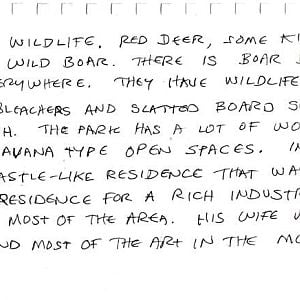 WILDLIFE. RED DEER, SOME KI
WILD BOAR. THERE IS BOAR
ERYWHERE. THEY HAVE WILDLIFE
BLEACHERS AND SLATTED BOARD S
H. THE PARK HAS A LOT OF WO
AVANA TYPE OPEN SPACES. IN
ASTLE-LIKE RESIDENCE THAT WA
RESIDENCE FOR A RICH INDUSTR
MOST OF THE AREA. HIS WIFE W
ND MOST OF THE ART IN THE MU